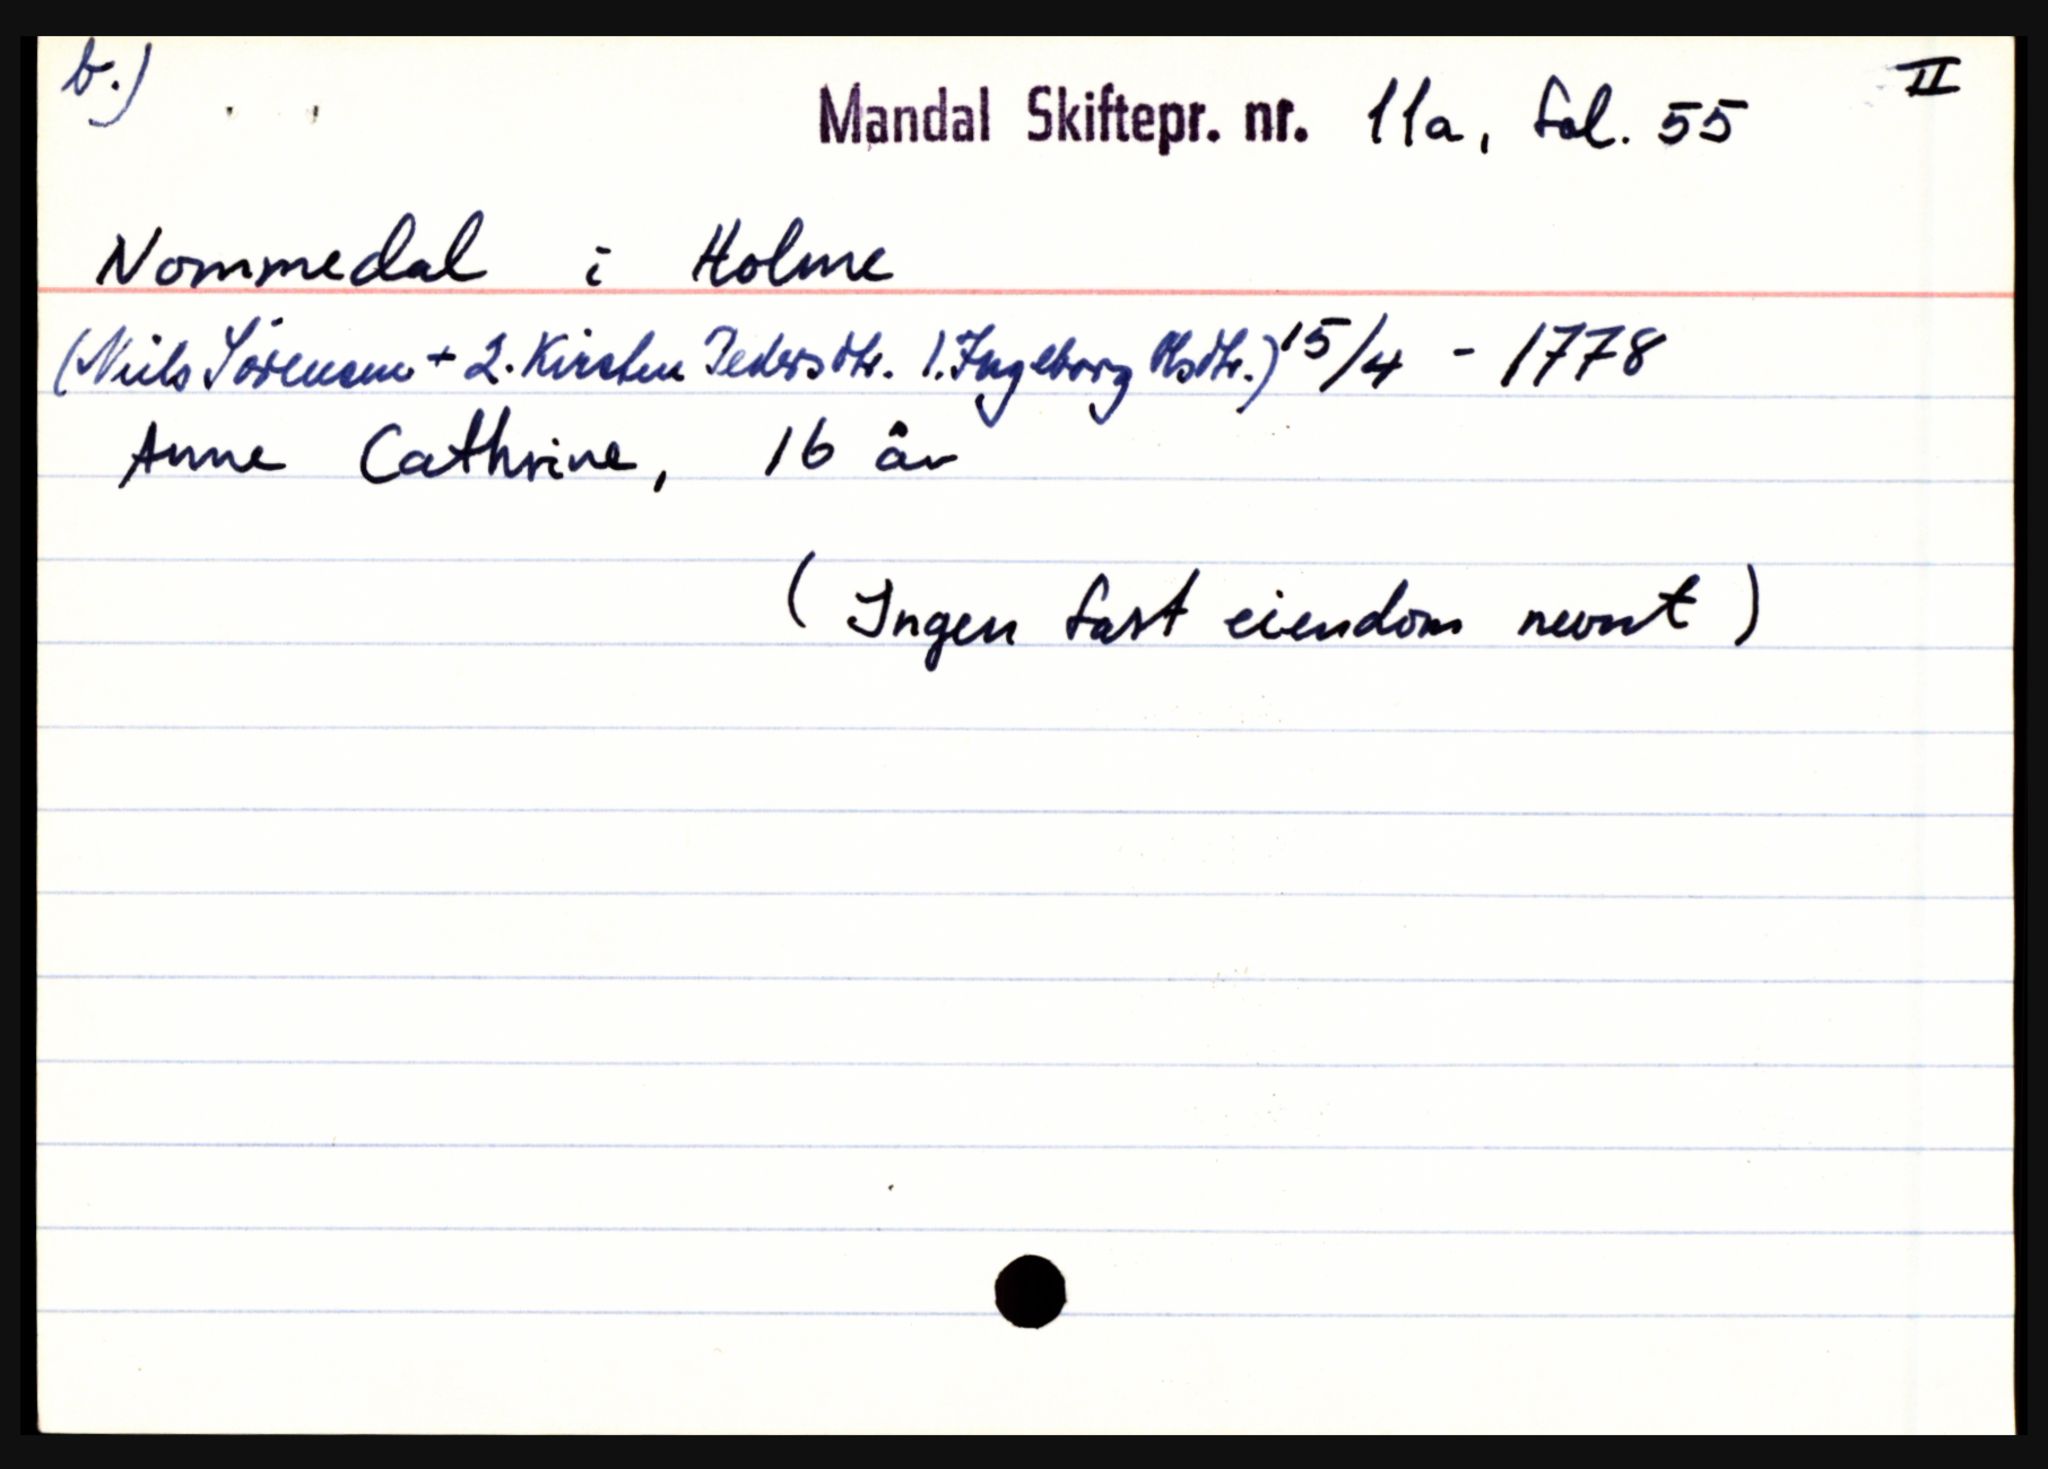 b.)
II
Mandal Skiftepr. nr. 11a, fol. 55
Nommedal i Holme
(Niels Sörensen + 2. Kirsten Pedersdtr. 1. Ingeborg Olsdtr.) 15/4 - 1778
Anne Cathrine, 16 år
(Ingen fast eiendom nevnt)